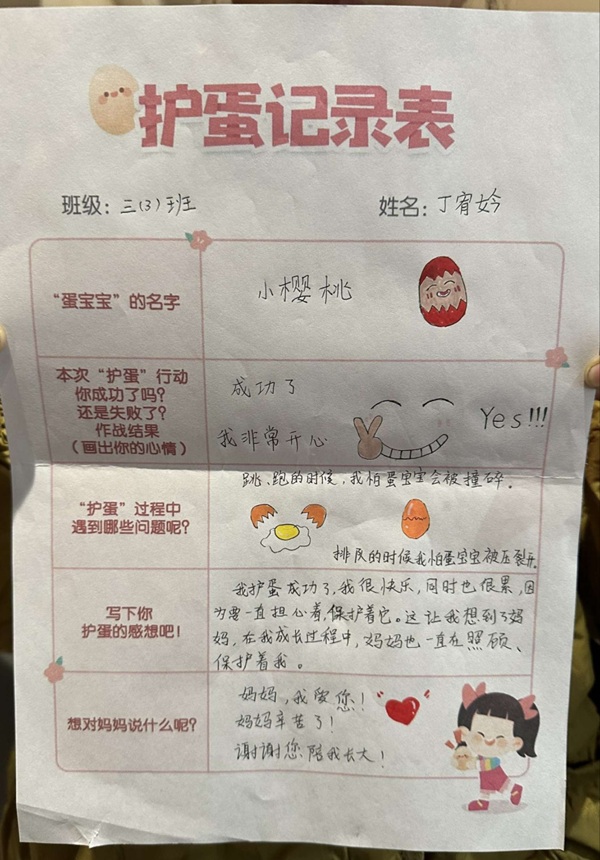 护蛋记录表
班级：三（3）班
姓名：丁宥妗
“蛋宝宝”的名字
小樱桃
本次“护蛋”行动
你成功了吗？
还是失败了？
作战结果
（画出你的心情）
成功了
我非常开心
Yes!!!
“护蛋”过程中
遇到哪些问题呢？
跳、跑的时候，我怕蛋宝宝会被撞碎。
排队的时候我怕蛋宝宝被压裂开。
写下你
护蛋的感想吧！
我护蛋成功了，我很快乐，同时也很累，因
为要一直担心着，保护着它。这让我想到了妈
妈，在我成长过程中，妈妈也一直在照顾、
保护着我。
想对妈妈说什么呢？
妈妈，我爱您！
妈妈辛苦了！
谢谢您陪我长大！